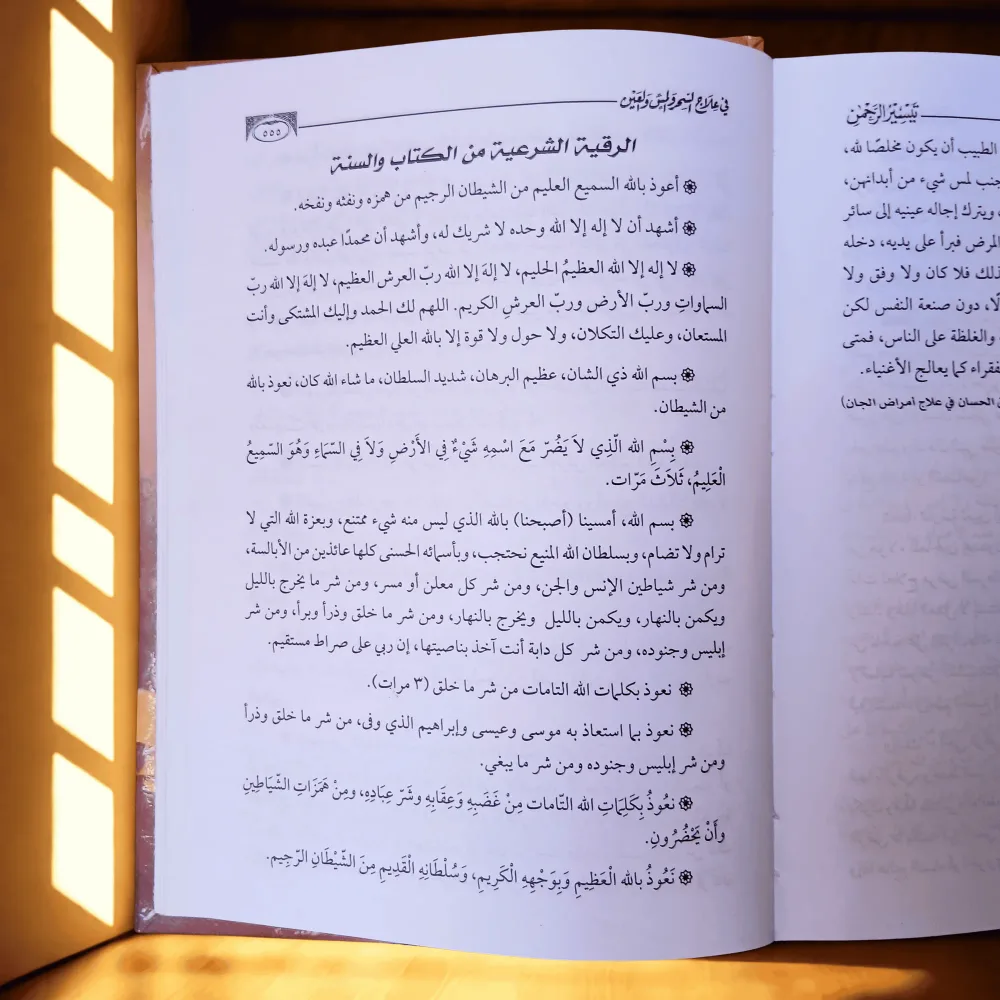 تيسير الرحمن
الطبيب أن يكون مخلصًا لله،
جنب لمس شيء من أبدانهن،
ويترك إجاله عينيه إلى سائر
المرض فبرأ على يديه، دخله
ذلك فلا كان ولا وفق ولا
دون صنعة النفس لكن
والغلظة على الناس، فمتى
فقراء كما يعالج الأغنياء.
الحسان في علاج أمراض الجان)
في علاج السحر والمس والعين
٥٥٥
الرقية الشرعية من الكتاب والسنة
أعوذ بالله السميع العليم من الشيطان الرجيم من همزه ونفثه ونفخه.
أشهد أن لا إله إلا الله وحده لا شريك له، وأشهد أن محمدًا عبده ورسوله.
لا إله إلا الله العظيمُ الحليم، لا إلهَ إلا الله ربّ العرش العظيم، لا إلهَ إلا الله ربّ
السماواتِ وربّ الأرض وربّ العرشِ الكريم. اللهم لك الحمد وإليك المشتكى وأنت
المستعان، وعليك التكلان، ولا حول ولا قوة إلا بالله العلي العظيم.
بسم الله ذي الشان، عظيم البرهان، شديد السلطان، ما شاء الله كان، نعوذ بالله
من الشيطان.
بِسْمِ الله الّذِي لاَ يَضُرّ مَعَ اسْمِهِ شَيْءٌ فِي الأَرْضِ وَلاَ فِي السّمَاءِ وَهُوَ السّمِيعُ
الْعَلِيمُ، ثَلاَثَ مَرّات.
بسم الله، أمسينا (أصبحنا) بالله الذي ليس منه شيء ممتنع، وبعزة الله التي لا
ترام ولا تضام، وبسلطان الله المنيع نحتجب، وبأسمائه الحسنى كلها عائذين من الأبالسة،
ومن شر شياطين الإنس والجن، ومن شر كل معلن أو مسر، ومن شر ما يخرج بالليل
ويكمن بالنهار، ويكمن بالليل ويخرج بالنهار، ومن شر ما خلق وذرأ وبرأ، ومن شر
إبليس وجنوده، ومن شر كل دابة أنت آخذ بناصيتها، إن ربي على صراط مستقيم.
نعوذ بكلمات الله التامات من شر ما خلق (٣ مرات).
نعوذ بما استعاذ به موسى وعيسى وإبراهيم الذي وفى، من شر ما خلق وذرأ
ومن شر إبليس وجنوده ومن شر ما يبغي.
نعُوذُ بِكَلِمَاتِ الله التّامات مِنْ غَضَبِهِ وَعِقَابِهِ وشَرّ عِبَادِهِ، ومِنْ هَمَزَاتِ الشّيَاطِينِ
وأَنْ يَحْضُرُونِ.
نَعُوذُ بالله الْعَظِيمِ وَبِوَجْهِهِ الْكَرِيمِ، وَسُلْطَانِهِ الْقَدِيمِ مِنَ الشّيْطَانِ الرّجِيم.